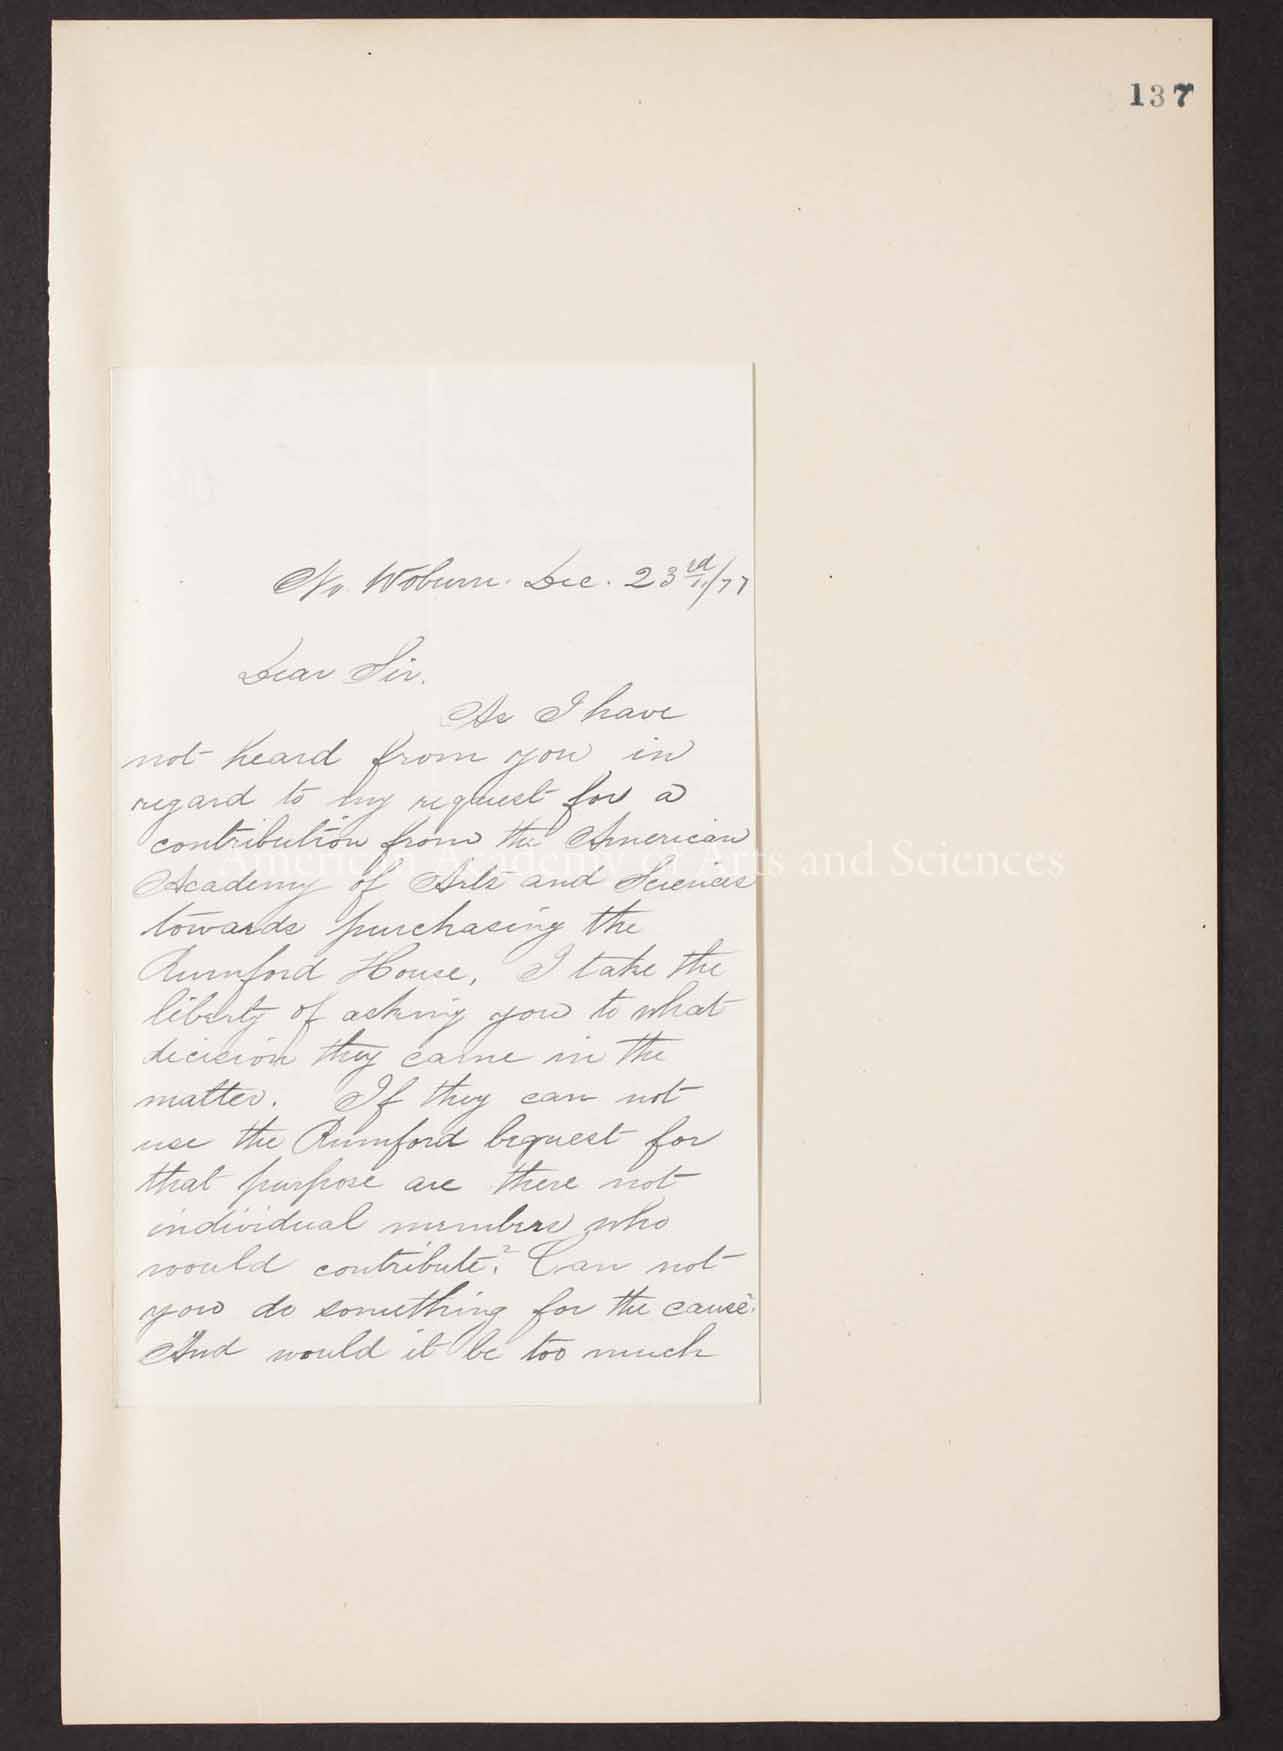 137
No. Woburn. Dec. 23rd/77
Dear Sir.
As I have
not heard from you in
regard to my request for a
contribution from the American
Academy of Arts and Sciences
towards purchasing the
Rumford House, I take the
liberty of asking you to what
decision they came in the
matter. If they can not
use the Rumford bequest for
that purpose are there not
individual members who
would contribute? Can not
you do something for the cause?
And would it be too much
American Academy of Arts and Sciences